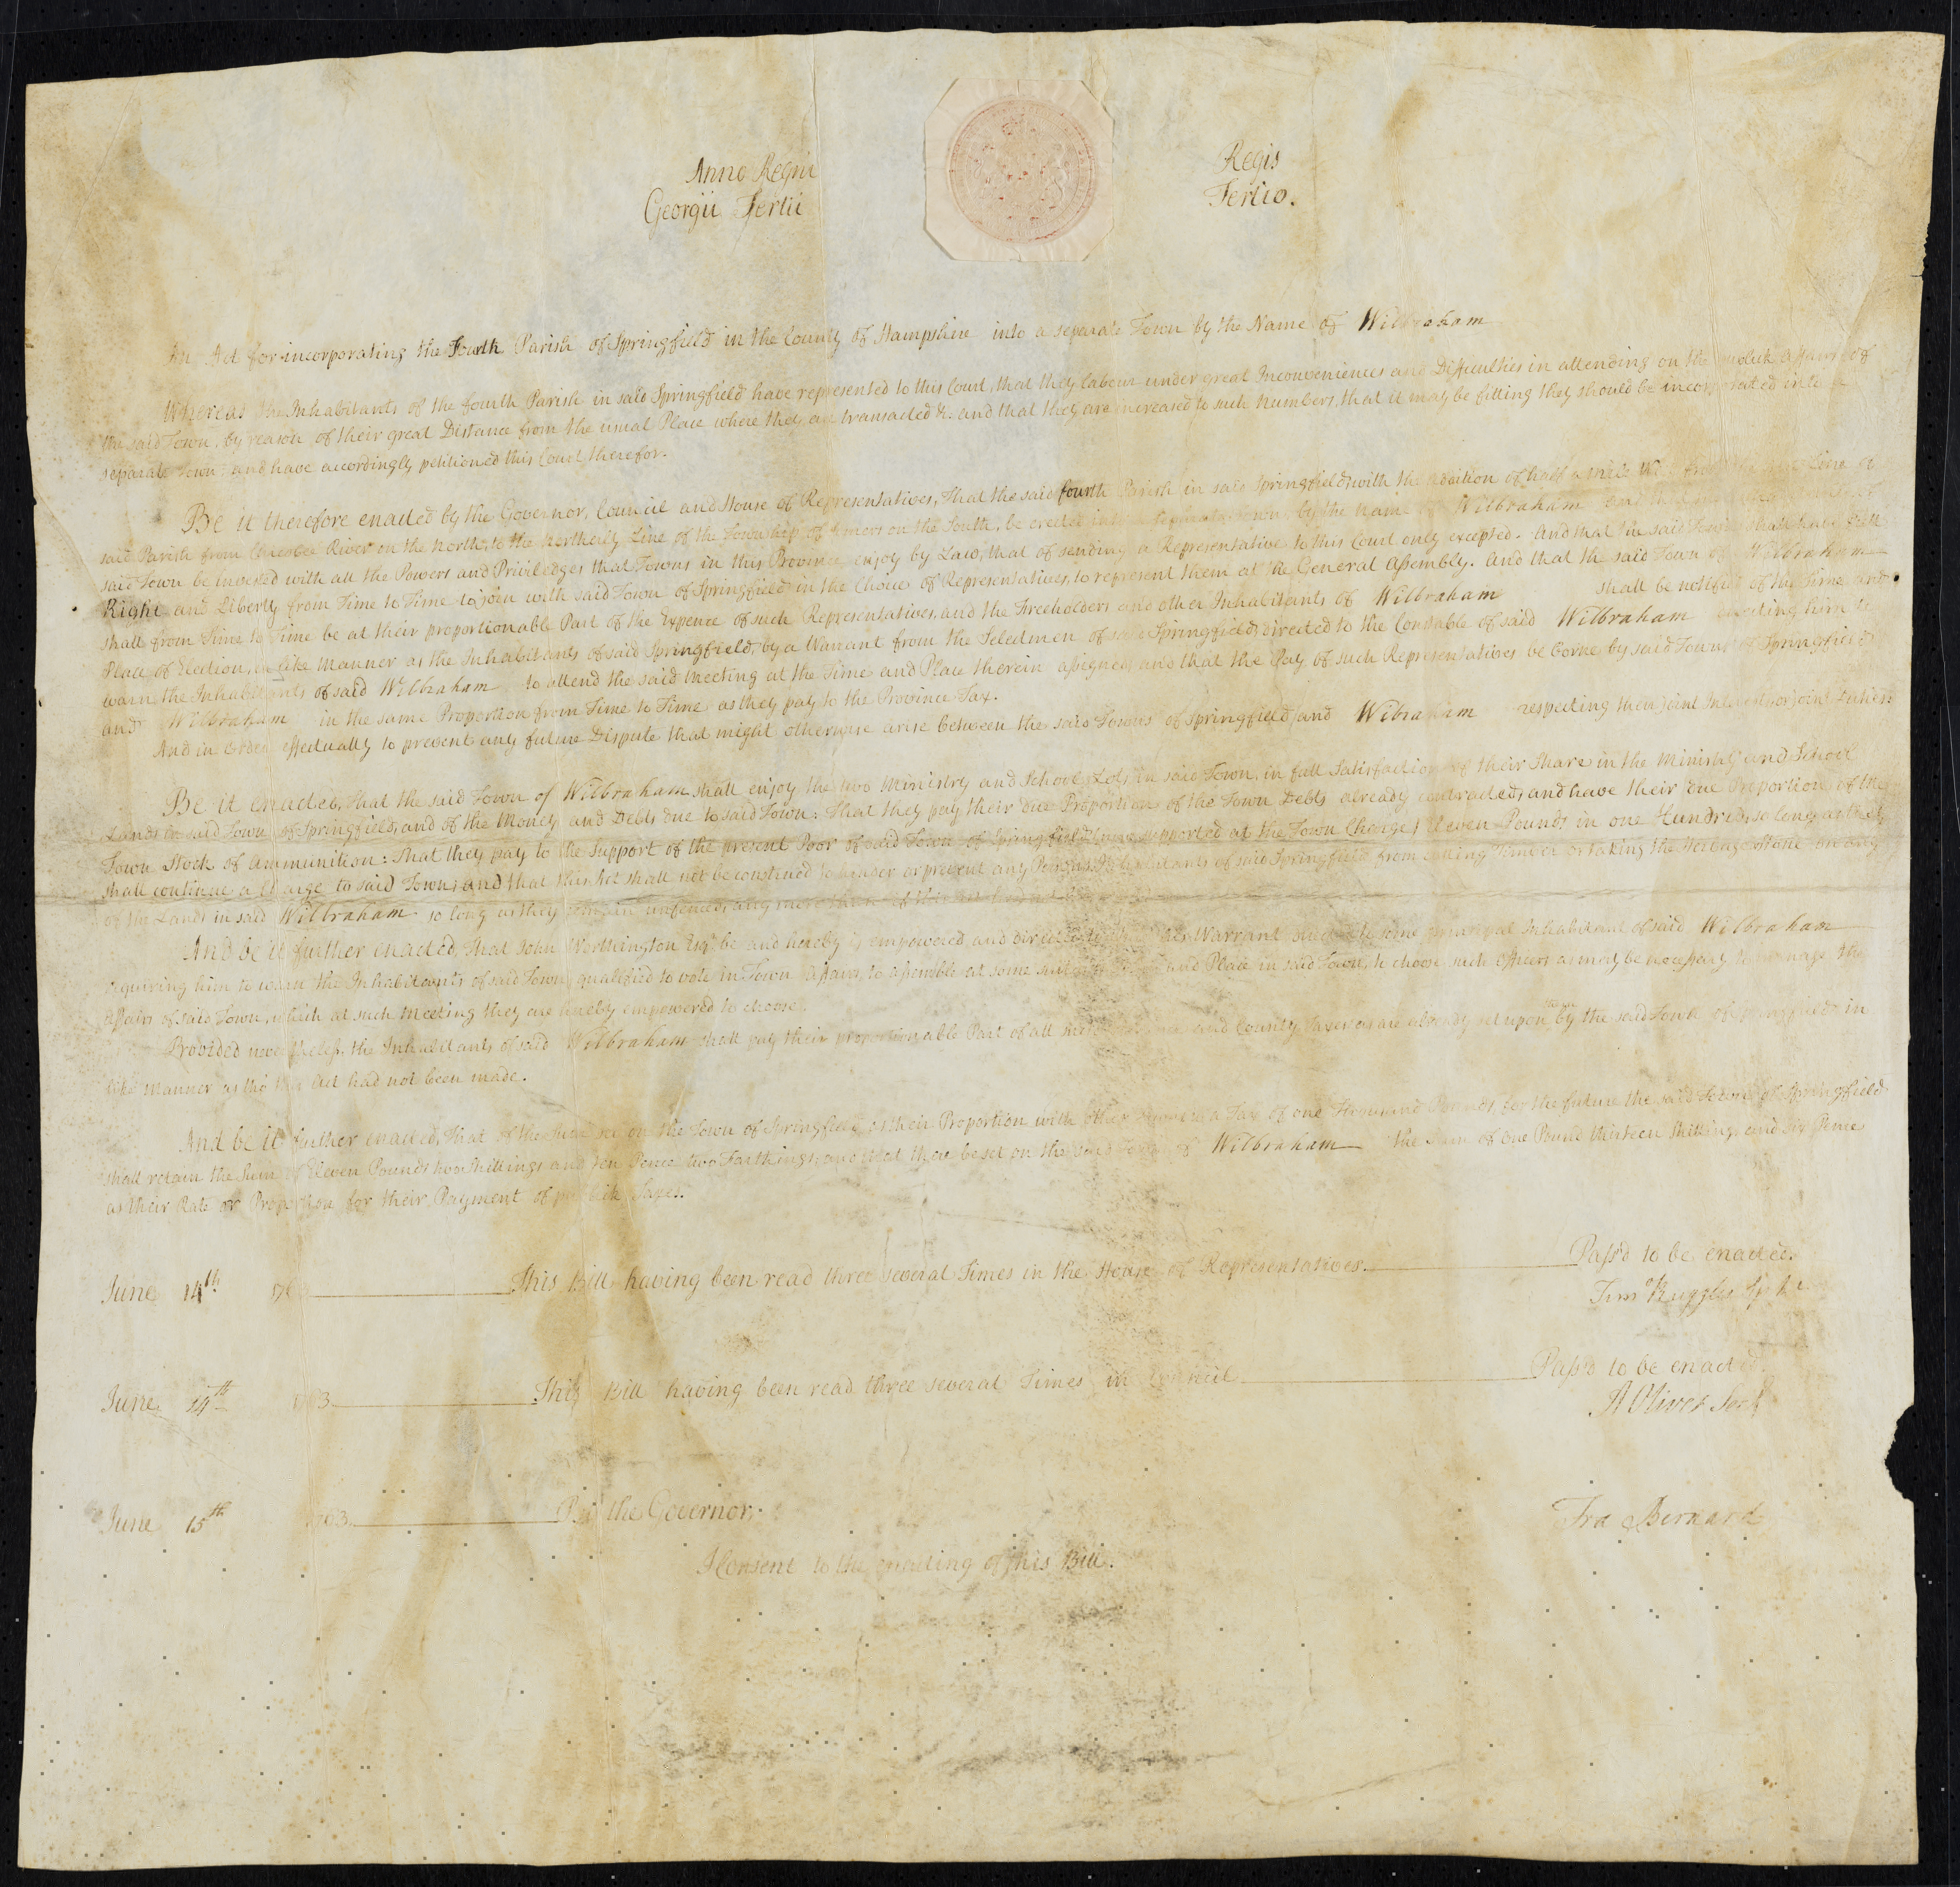 Anno Regni Regis
Georgii Tertii Tertio.
An Act for incorporating the Fourth Parish of Springfield in the County of Hampshire into a separate Town by the Name of Wilbraham
Whereas the Inhabitants of the fourth Parish in said Springfield have represented to this Court, that they labour under great Inconveniences and Difficulties in attending on the publick Affairs of
the said Town, by reason of their great Distance from the usual Place where they are transacted &c. and that they are increased to such Numbers, that it may be fitting they should be incorporated into a
separate Town: and have accordingly petitioned this Court therefor.
Be it therefore enacted by the Governor, Council and House of Representatives, That the said fourth Parish in said Springfield, with the addition of half a mile Line of
said Parish from Chicobee River on the North, to the Northerly Line of the Township of Somers on the South, be erected into a separate Town, by the Name of Wilbraham and that
said Town be invested with all the Powers and Priviledges that Towns in this Province enjoy by Law, that of sending a Representative to this Court only excepted. And that the said Town shall have full
Right and Liberty from Time to Time to join with said Town of Springfield in the Choice of Representatives, to represent them at the General Assembly. And that the said Town of Wilbraham
shall from Time to Time be at their proportionable Part of the Expence of such Representatives, and the Freeholders and other Inhabitants of Wilbraham shall be notified of the Time and
Place of Election, in like Manner as the Inhabitants of said Springfield, by a Warrant from the Selectmen of said Springfield, directed to the Constable of said Wilbraham him to
warn the Inhabitants of said Wilbraham to attend the said Meeting at the Time and Place therein assigned, and that the Pay of such Representatives be borne by said Towns of Springfield
and Wilbraham in the same Proportion from Time to Time as they pay to the Province Tax.
And in Order effectually to prevent any future Dispute that might otherwise arise between the said Towns of Springfield and Wibraham respecting their joint Interest, or joint Duties:
Be it enacted, That the said Town of Wilbraham shall enjoy the two Ministry and School Lots in said Town, in full Satisfaction of their Share in the Ministry and School
Lands in said Town of Springfield, and of the Money and Debts due to said Town: That they pay their due Proportion of the Town Debts already contracted, and have their due Proportion of the
Town Stock of Ammunition: That they pay to the Support of the present Poor of said Town of Springfield supported at the Town Charge, Eleven Pounds in one Hundred, so long as they
shall continue a Charge to said Town, and that this Act shall not be construed to hinder or prevent any Persons Inhabitants of said Springfield from cutting Timber or taking the Herbage Stone on any
of the Lands in said Wilbraham so long as they remain unfenced, any more than if this Act had not
And be it further enacted, That John Worthington Esqr. be and hereby is empowered and directed to his Warrant directed to some principal Inhabitant of said Wilbraham
requiring him to warn the Inhabitants of said Town, qualified to vote in Town Affairs, to assemble at some suitable Time and Place in said Town, to choose such Officers as may be necessary to manage the
Affairs of said Town, which at such Meeting they are hereby empowered to choose.
Provided nevertheless the Inhabitants of said Wilbraham shall pay their proportionable Part of all such and County Taxes as are already set upon them by the said Town of Springfield in
like Manner as tho' this Act had not been made.
And be it further enacted, That of the Sum set on the Town of Springfield as their Proportion with other Towns to a Tax of one Thousand Pounds, for the future the said Town of Springfield
shall retain the Sum of Eleven Pounds two Shillings and ten Pence two Farthings, and that there be set on the said Town of Wilbraham the Sum of One Pound thirteen Shillings and six Pence
as their Rate or Proportion for their Payment of publick Taxes.
June 14th 176 This Bill having been read three several Times in the House of Representatives. Pass'd to be enacted.
Timo Ruggles Spkr
June 14th 1763 This Bill having been read three several Times in Council Pass'd to be enacted.
A Oliver Secr
June 15th 1763 By the Governor, Fra Bernard
I Consent to the enacting of this Bill.